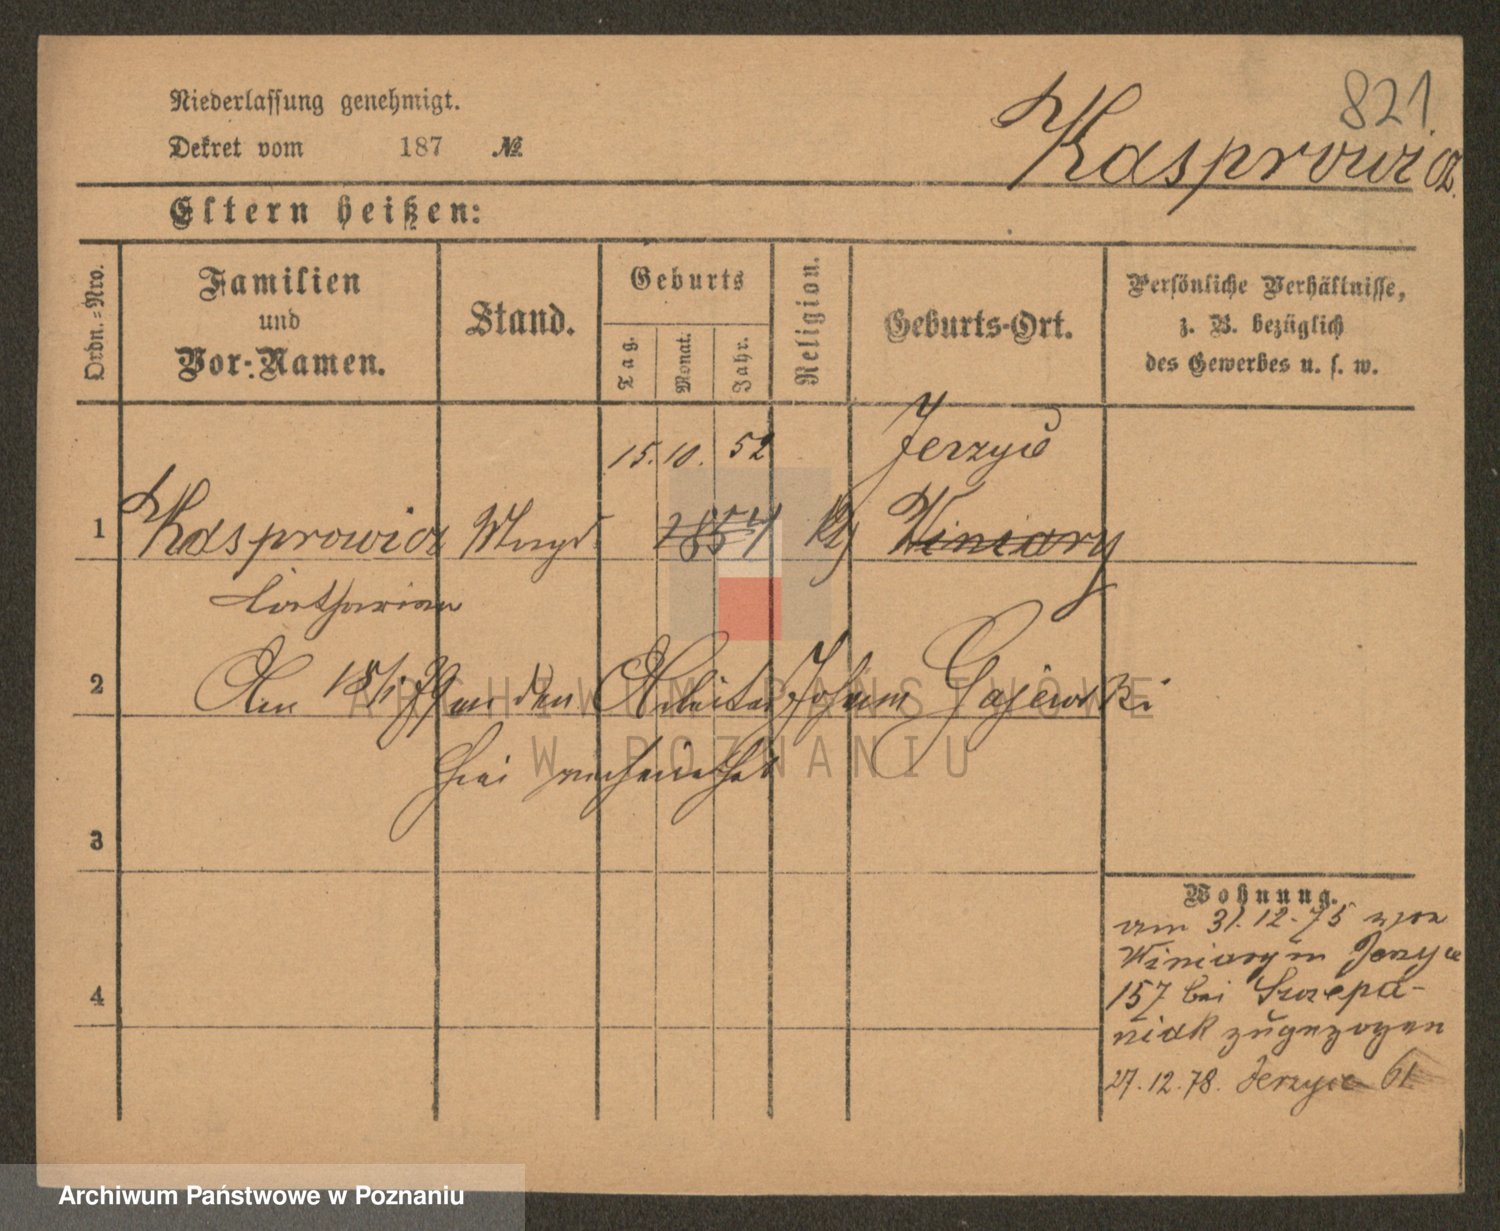 821
Niederlassung genehmigt.
Dekret vom 187 №
Kasprowicz
Eltern heißen:
Ordn.-Nro.
Familien
und
Vor-Namen.
Stand.
Geburts
Tag.
Monat.
Jahr.
Religion.
Geburts-Ort.
Persönliche Verhältnisse,
z. B. bezüglich
des Gewerbes u. s. w.
15. 10. 52 Jerzyce
1 Kasprowicz Magd 1854 kt Winiary
Catharina
2 Am 15/1 79 an den Arbeiter Johann Gajewski
hier verheirathet
3
4
Wohnung.
am 31.12.75 von
Winiary in Jerzyce
157 bei Szczepa-
niak zugezogen
27.12.78. Jerzyce 61
ARCHIWUM PAŃSTWOWE
W POZNANIU
Archiwum Państwowe w Poznaniu